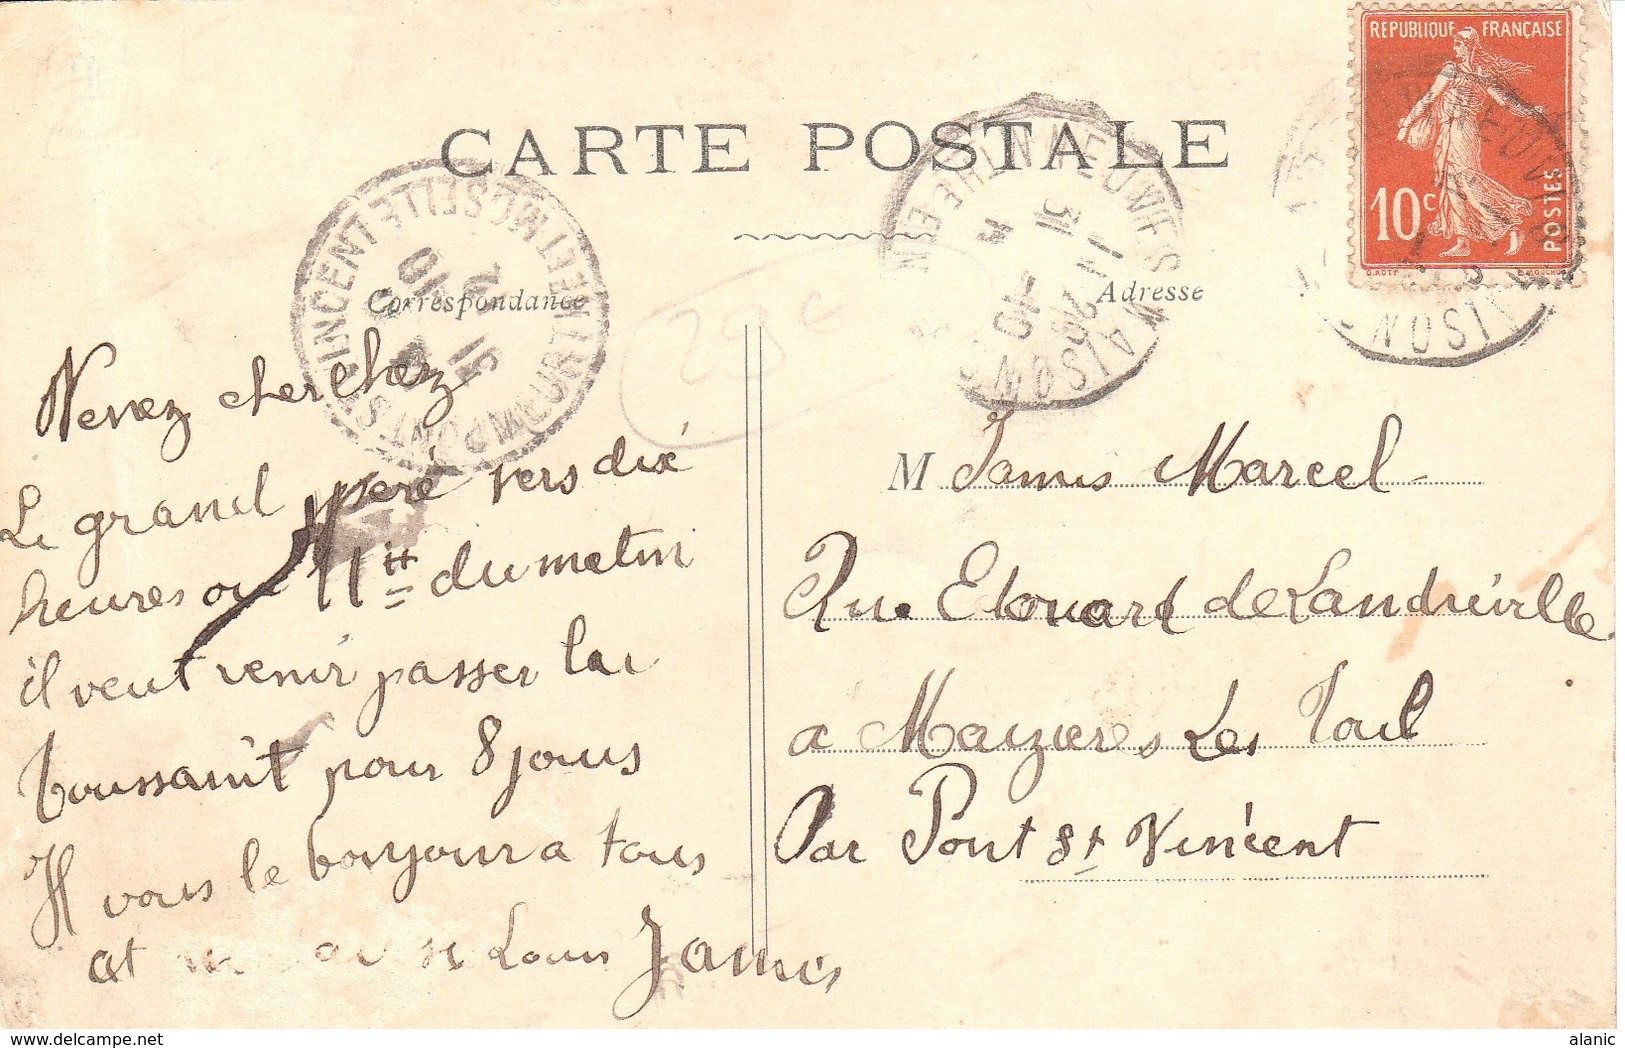 REPUBLIQUE FRANÇAISE
10c
POSTES
O. ROTY
CARTE POSTALE
VINCENT
MEURTHE ET MOSELLE
31
-10
MAISONS
MAISONS
Correspondance
Adresse
Venez cherchez
Le grand peré vers dix
heures ou 11 du matin
il veut venir passer la
Toussaint pour 8 jours
Il vous le bonjour a tous
at Louis Jamis
M Jamis Marcel
Rue Edouard de Landreville
a Mayzieres Les Toul
Par Pont St Vincent
alanic